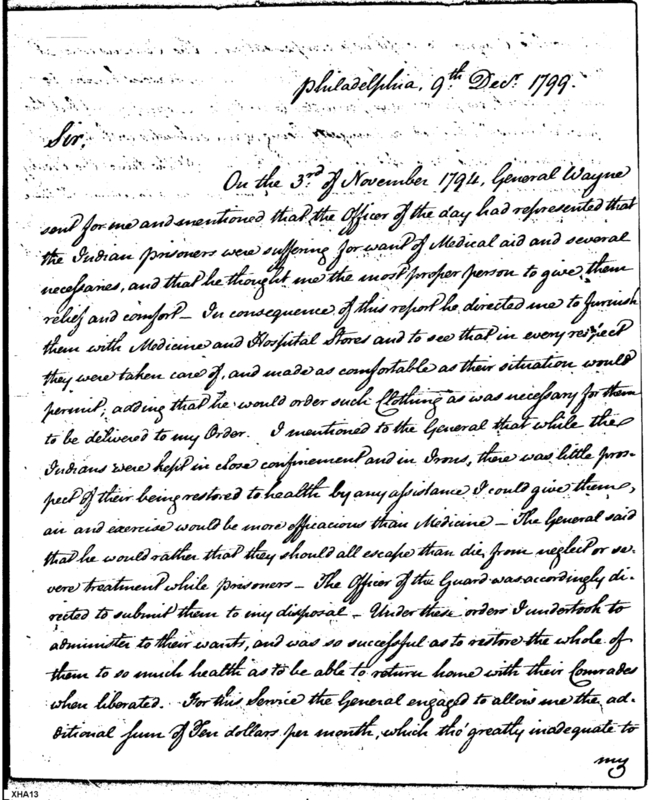 Philadelphia, 9th Decr. 1799.
Sir,
On the 3rd of November 1794, General Wayne
sent for me and mentioned that the Officer of the day had represented that
the Indian prisoners were suffering for want of Medical aid and several
necessaries, and that he thought me the most proper person to give them
relief and comfort – In consequence of this report he directed me to furnish
them with Medicine and Hospital Stores and to see that in every respect
they were taken care of, and made as comfortable as their situation would
permit, adding that he would order such Clothing as was necessary for them
to be delivered to my Order. I mentioned to the General that while the
Indians were kept in close confinement and in Irons, there was little pros-
pect of their being restored to health by any assistance I could give them,
air and exercise would be more efficacious than Medicine – The General said
that he would rather that they should all escape than die from neglect or se-
vere treatment while prisoners – The Officer of the Guard was accordingly di-
rected to submit them to my disposal – Under these orders I undertook to
administer to their wants, and was so successful as to restore the whole of
them to so much health as to be able to return home with their Comrades
when liberated. For this Service the General engaged to allow me the ad-
ditional sum of Ten dollars per month, which tho' greatly inadequate to
my
XHA13